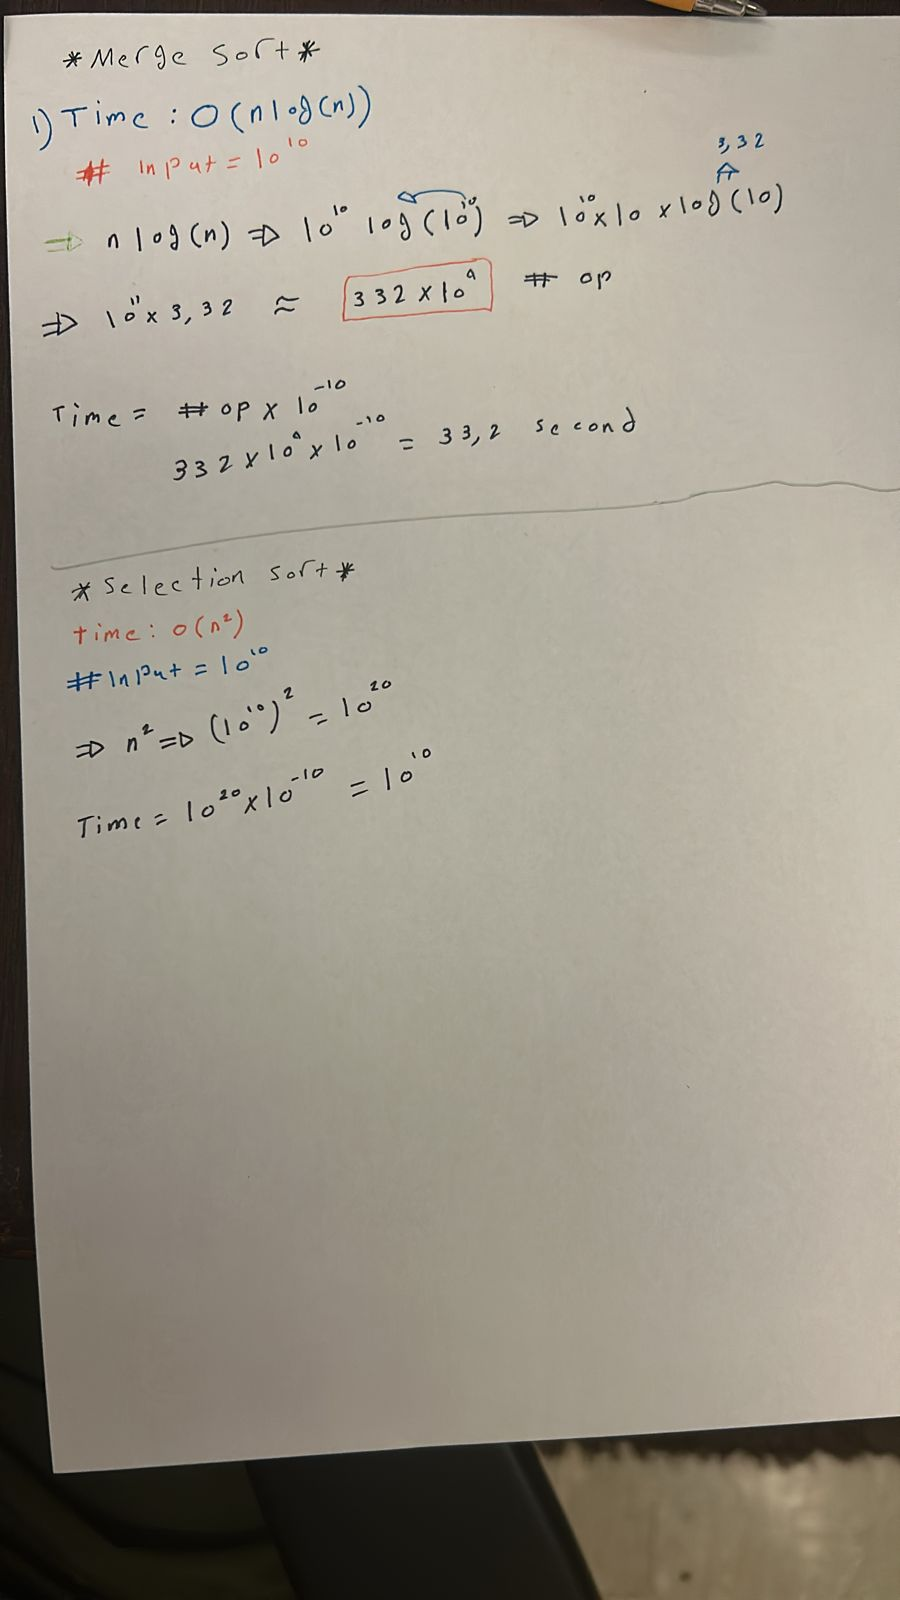 * Merge Sort *
1) Time : O(n log(n))
# Input = 10¹⁰
3,32
⇒ n log(n) ⇒ 10¹⁰ log(10¹⁰) ⇒ 10¹⁰ x 10 x log(10)
⇒ 10¹¹ x 3,32 ≈ 332 x 10⁹ # op
Time = # op x 10⁻¹⁰
332 x 10⁹ x 10⁻¹⁰ = 33,2 second
* Selection sort *
time: O(n²)
# Input = 10¹⁰
⇒ n² ⇒ (10¹⁰)² = 10²⁰
Time = 10²⁰ x 10⁻¹⁰ = 10¹⁰